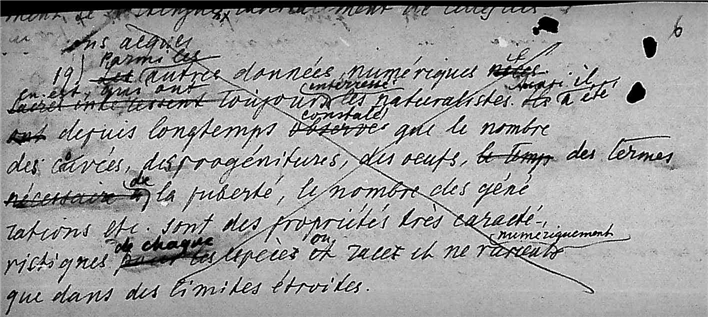 6
ons acques
19) Parmi les autres données numériques il
en est, qui ont toujours interressé les naturalistes. Ainsi il a été
depuis longtemps constaté que le nombre
des cuvées, des progénitures, des oeufs, le temps des termes
nécessaire de la puberté, le nombre des géné
rations etc. sont des propriétés tres caracté-
ristiques de chaque espèce ou race et ne varient numériquement
que dans des limites étroites.